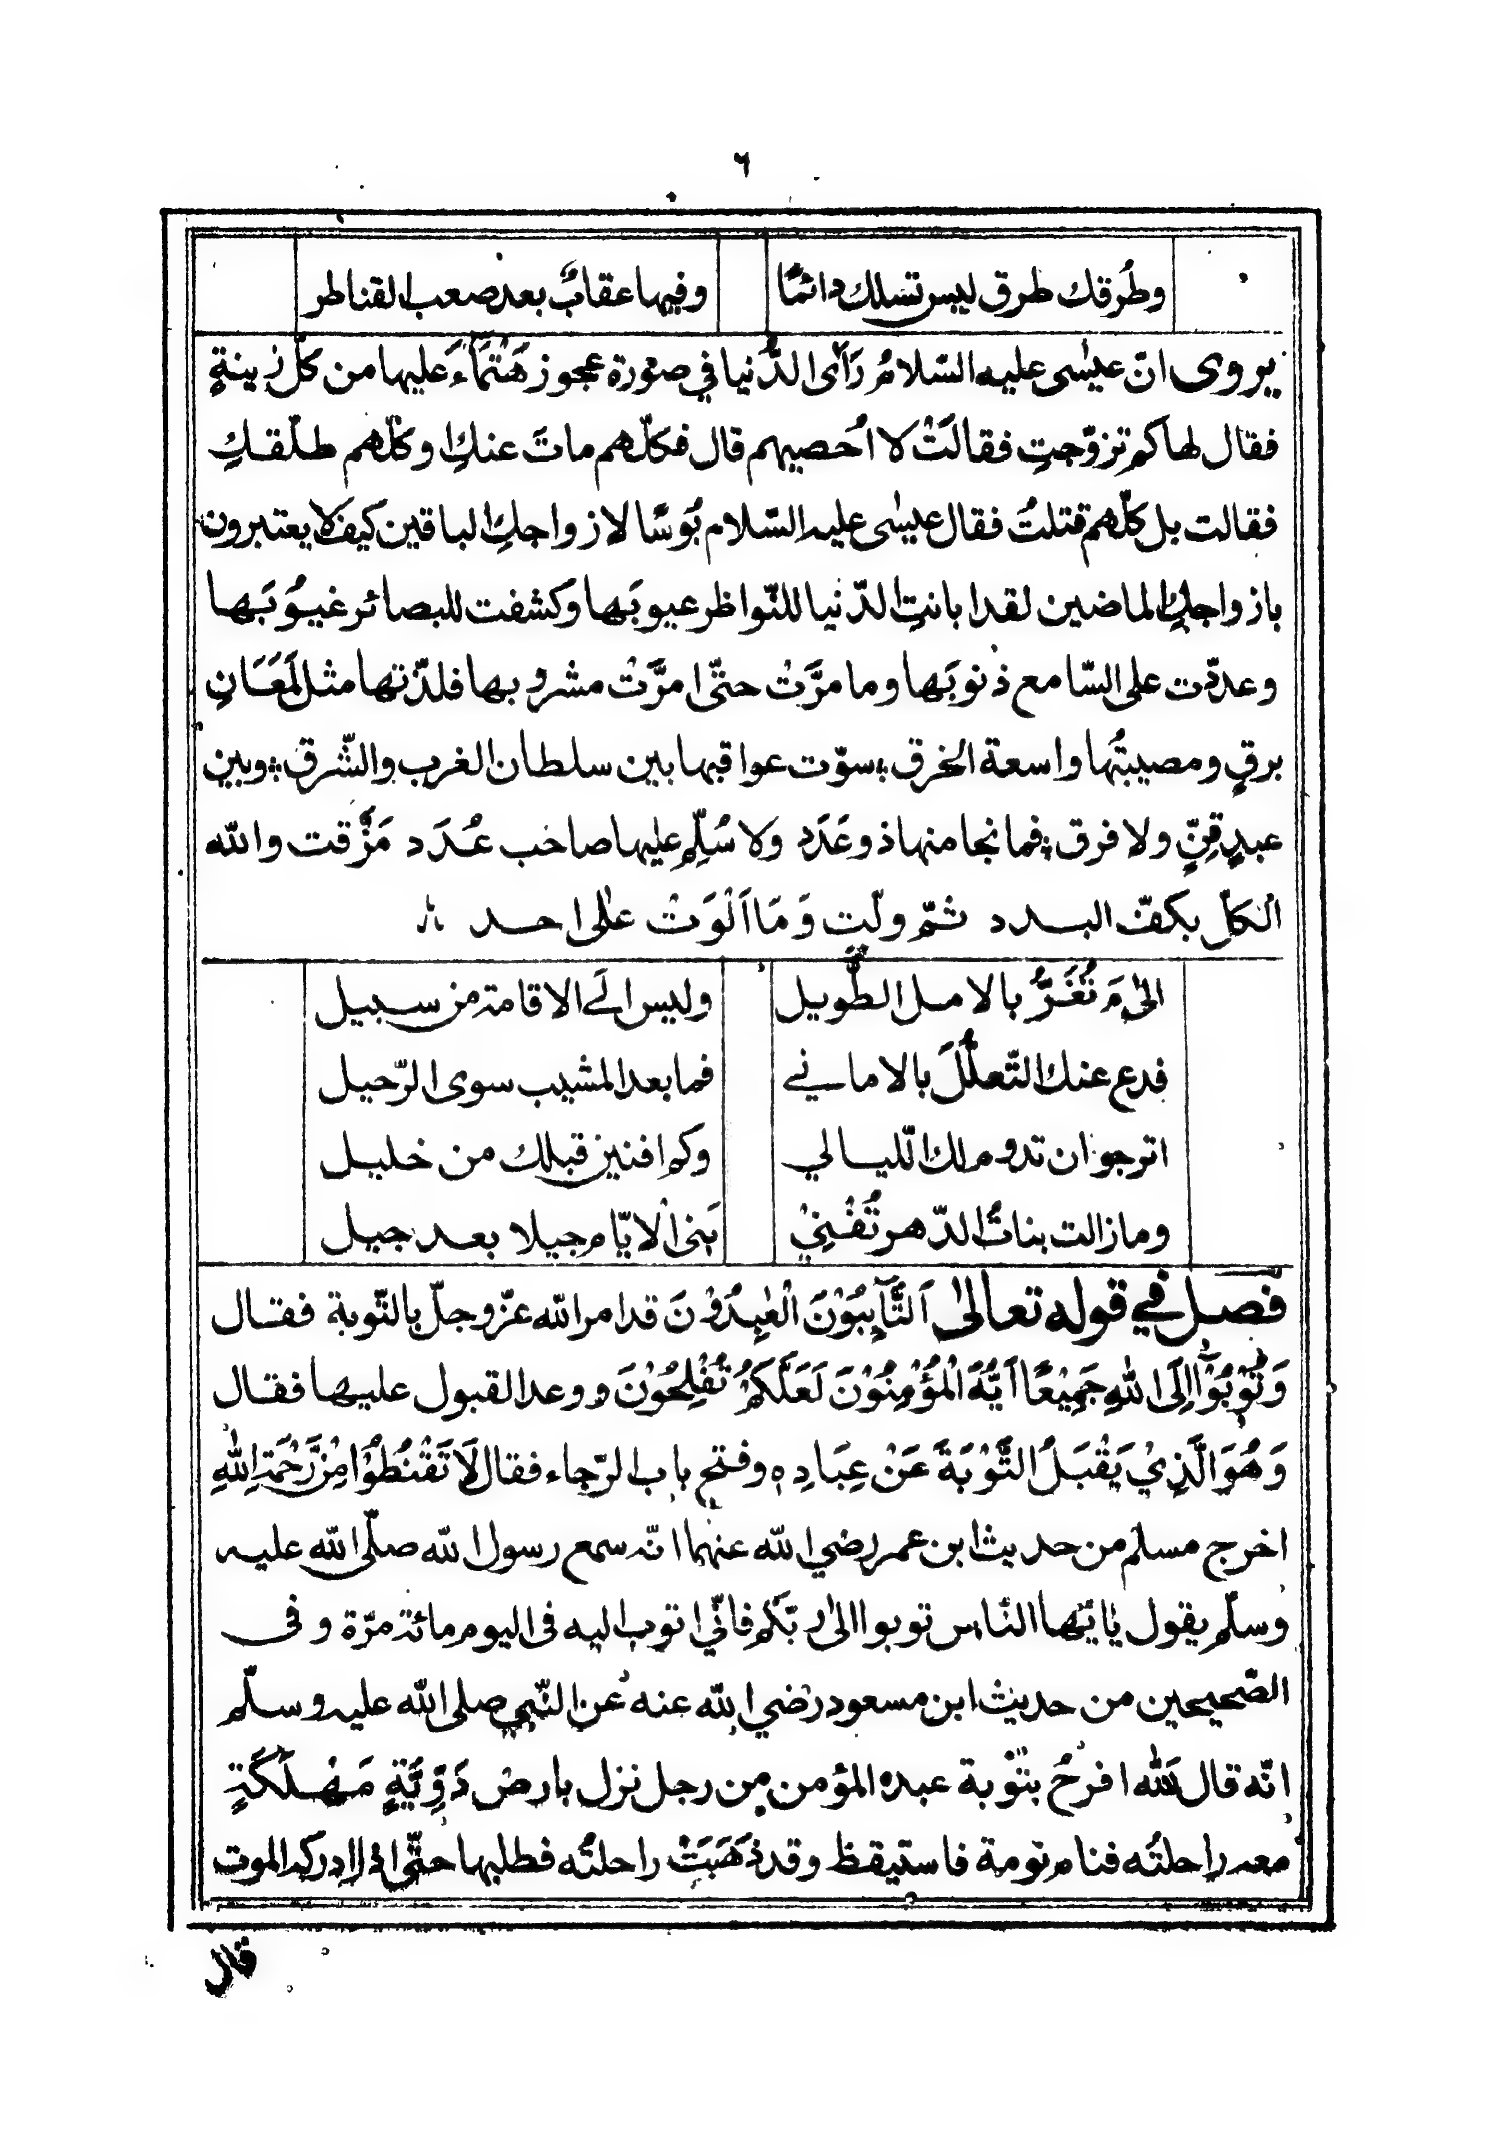 ٦
وطُرقك طرق ليس تسلك دائمًا وفيها عقابٌ بعد صعب القناطر
يروى انّ عيسٰى عليه السّلامُ رَاَى الدُّنيا في صورة عجوز هَتْمَاءَ عليها من كلّ زينةٍ
فقال لها كم تزوّجتِ فقالَتْ لا اُحصيهم قال فكلّهم ماتَ عنكِ او كلّهم طلّقكِ
فقالت بل كلّهم قتلتُ فقال عيسٰى عليه السّلام بُوسًا لازواجكِ الباقين كيف لا يعتبرون
بازواجكِ الماضين لقد ابانتِ الدّنيا للنّواظر عيوبَها وكشفت للبصائر غيُوبَها
وعدّدت على السّامع ذنوبَها وما مرَّتْ حتّى امرَّتْ مشروبها فلذّتها مثل لَمَعَانِ
برقٍ ومصيبتُها واسعة الخرق؛ سوّت عواقبها بين سلطان الغرب والشّرق؛ وبين
عبدٍ قِنٍّ ولا فرق؛ فما نجا منها ذو عَدَد ولا سُلِّم عليها صاحب عُدَد مَزَّقت والله
الكلّ بكفّ البدد ثمّ ولّت وَمَا اَلْوَتْ على احد
الىٰ مَ تُغَرُّ بالامل الطّويل وليس الَے الاقامة من سبيل
فدع عنك التّعلُّلَ بالامانے فما بعد المشيب سوى الرّحيل
اترجو ان تدوم لك اللّيالي وكم افنين قبلك من خليل
ومازالت بناتُ الدّهر تُفْنِيْ بَنى الْايّام جيلا بعد جيل
فصل في قوله تعالىٰ اَلتَّآئِبُوْنَ الْعٰبِدُوْنَ قد امر الله عزّ وجلّ بالتّوبة فقال
وَتُوْبُوْٓا اِلَى اللّٰهِ جَمِيْعًا اَيُّهَ الْمُؤْمِنُوْنَ لَعَلَّكُمْ تُفْلِحُوْنَ و وعد القبول عليها فقال
وَهُوَ الَّذِيْ يَقْبَلُ التَّوْبَةَ عَنْ عِبَادِهٖ وفتح باب الرّجاء فقال لَا تَقْنَطُوْا مِنْ رَّحْمَةِ اللّٰهِ
اخرج مسلم من حديث ابن عمر رضي الله عنهما انّه سمع رسول الله صلّى الله عليه
وسلّم يقول يٰايّها النّاس توبوا الىٰ ربّكم فانّي اتوب اليه فى اليوم مائة مرّة وفى
الصّحيحين من حديث ابن مسعود رضي الله عنه عن النّبي صلى الله عليه وسلّم
انّه قال لَلّٰه افرحُ بتوْبة عبده المؤمن من رجل نزل بارض دَوِّيَّةٍ مَهْلَكَةٍ
معه راحلتُه فنام نومة فاستيقظ وقد ذهَبَتْ راحلتُه فطلبها حتّى اذا ادركه الموت
قال